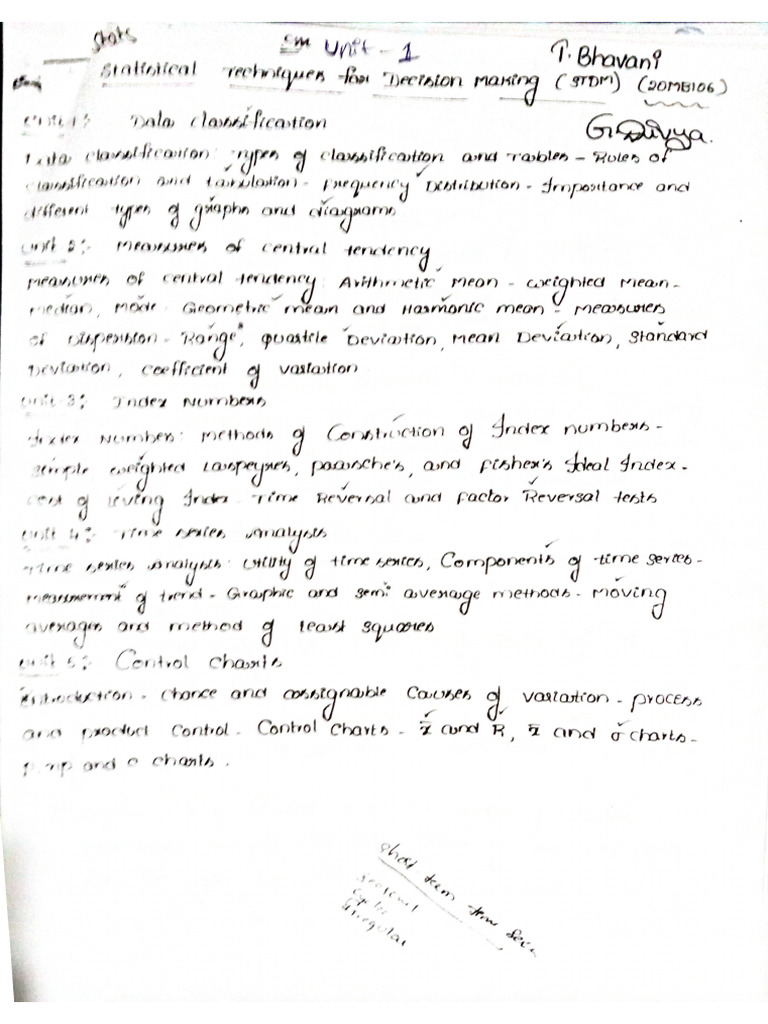 Stats
Sm Unit - 1
T. Bhavani
Statistical Techniques for Decision Making (STDM) (20MB106)
Unit 1: Data classification
G. Divya.
Data classification: Types of classification and Tables - Rules of
classification and tabulation - Frequency Distribution - Importance and
different types of graphs and diagrams
Unit 2: Measures of central tendency
Measures of central tendency: Arithmetic mean - weighted mean -
median, mode - Geometric mean and Harmonic mean - Measures
of Dispersion - Range, Quartile Deviation, Mean Deviation, Standard
Deviation, Coefficient of variation
Unit 3: Index Numbers
Index Number: Methods of Construction of Index numbers -
simple weighted Laspeyres, paasche's, and fisher's Ideal Index -
cost of living Index - Time Reversal and Factor Reversal tests
Unit 4: Time series analysis
Time series analysis: Utility of time series, Components of time series -
measurement of trend - Graphic and semi average methods - Moving
averages and method of least squares
Unit 5: Control charts
Introduction - Chance and assignable Causes of variation - process
and product control - Control Charts - x̄ and R, x̄ and σ charts -
p, np and c charts.
Short term time
seasonal
cyclic
irregular